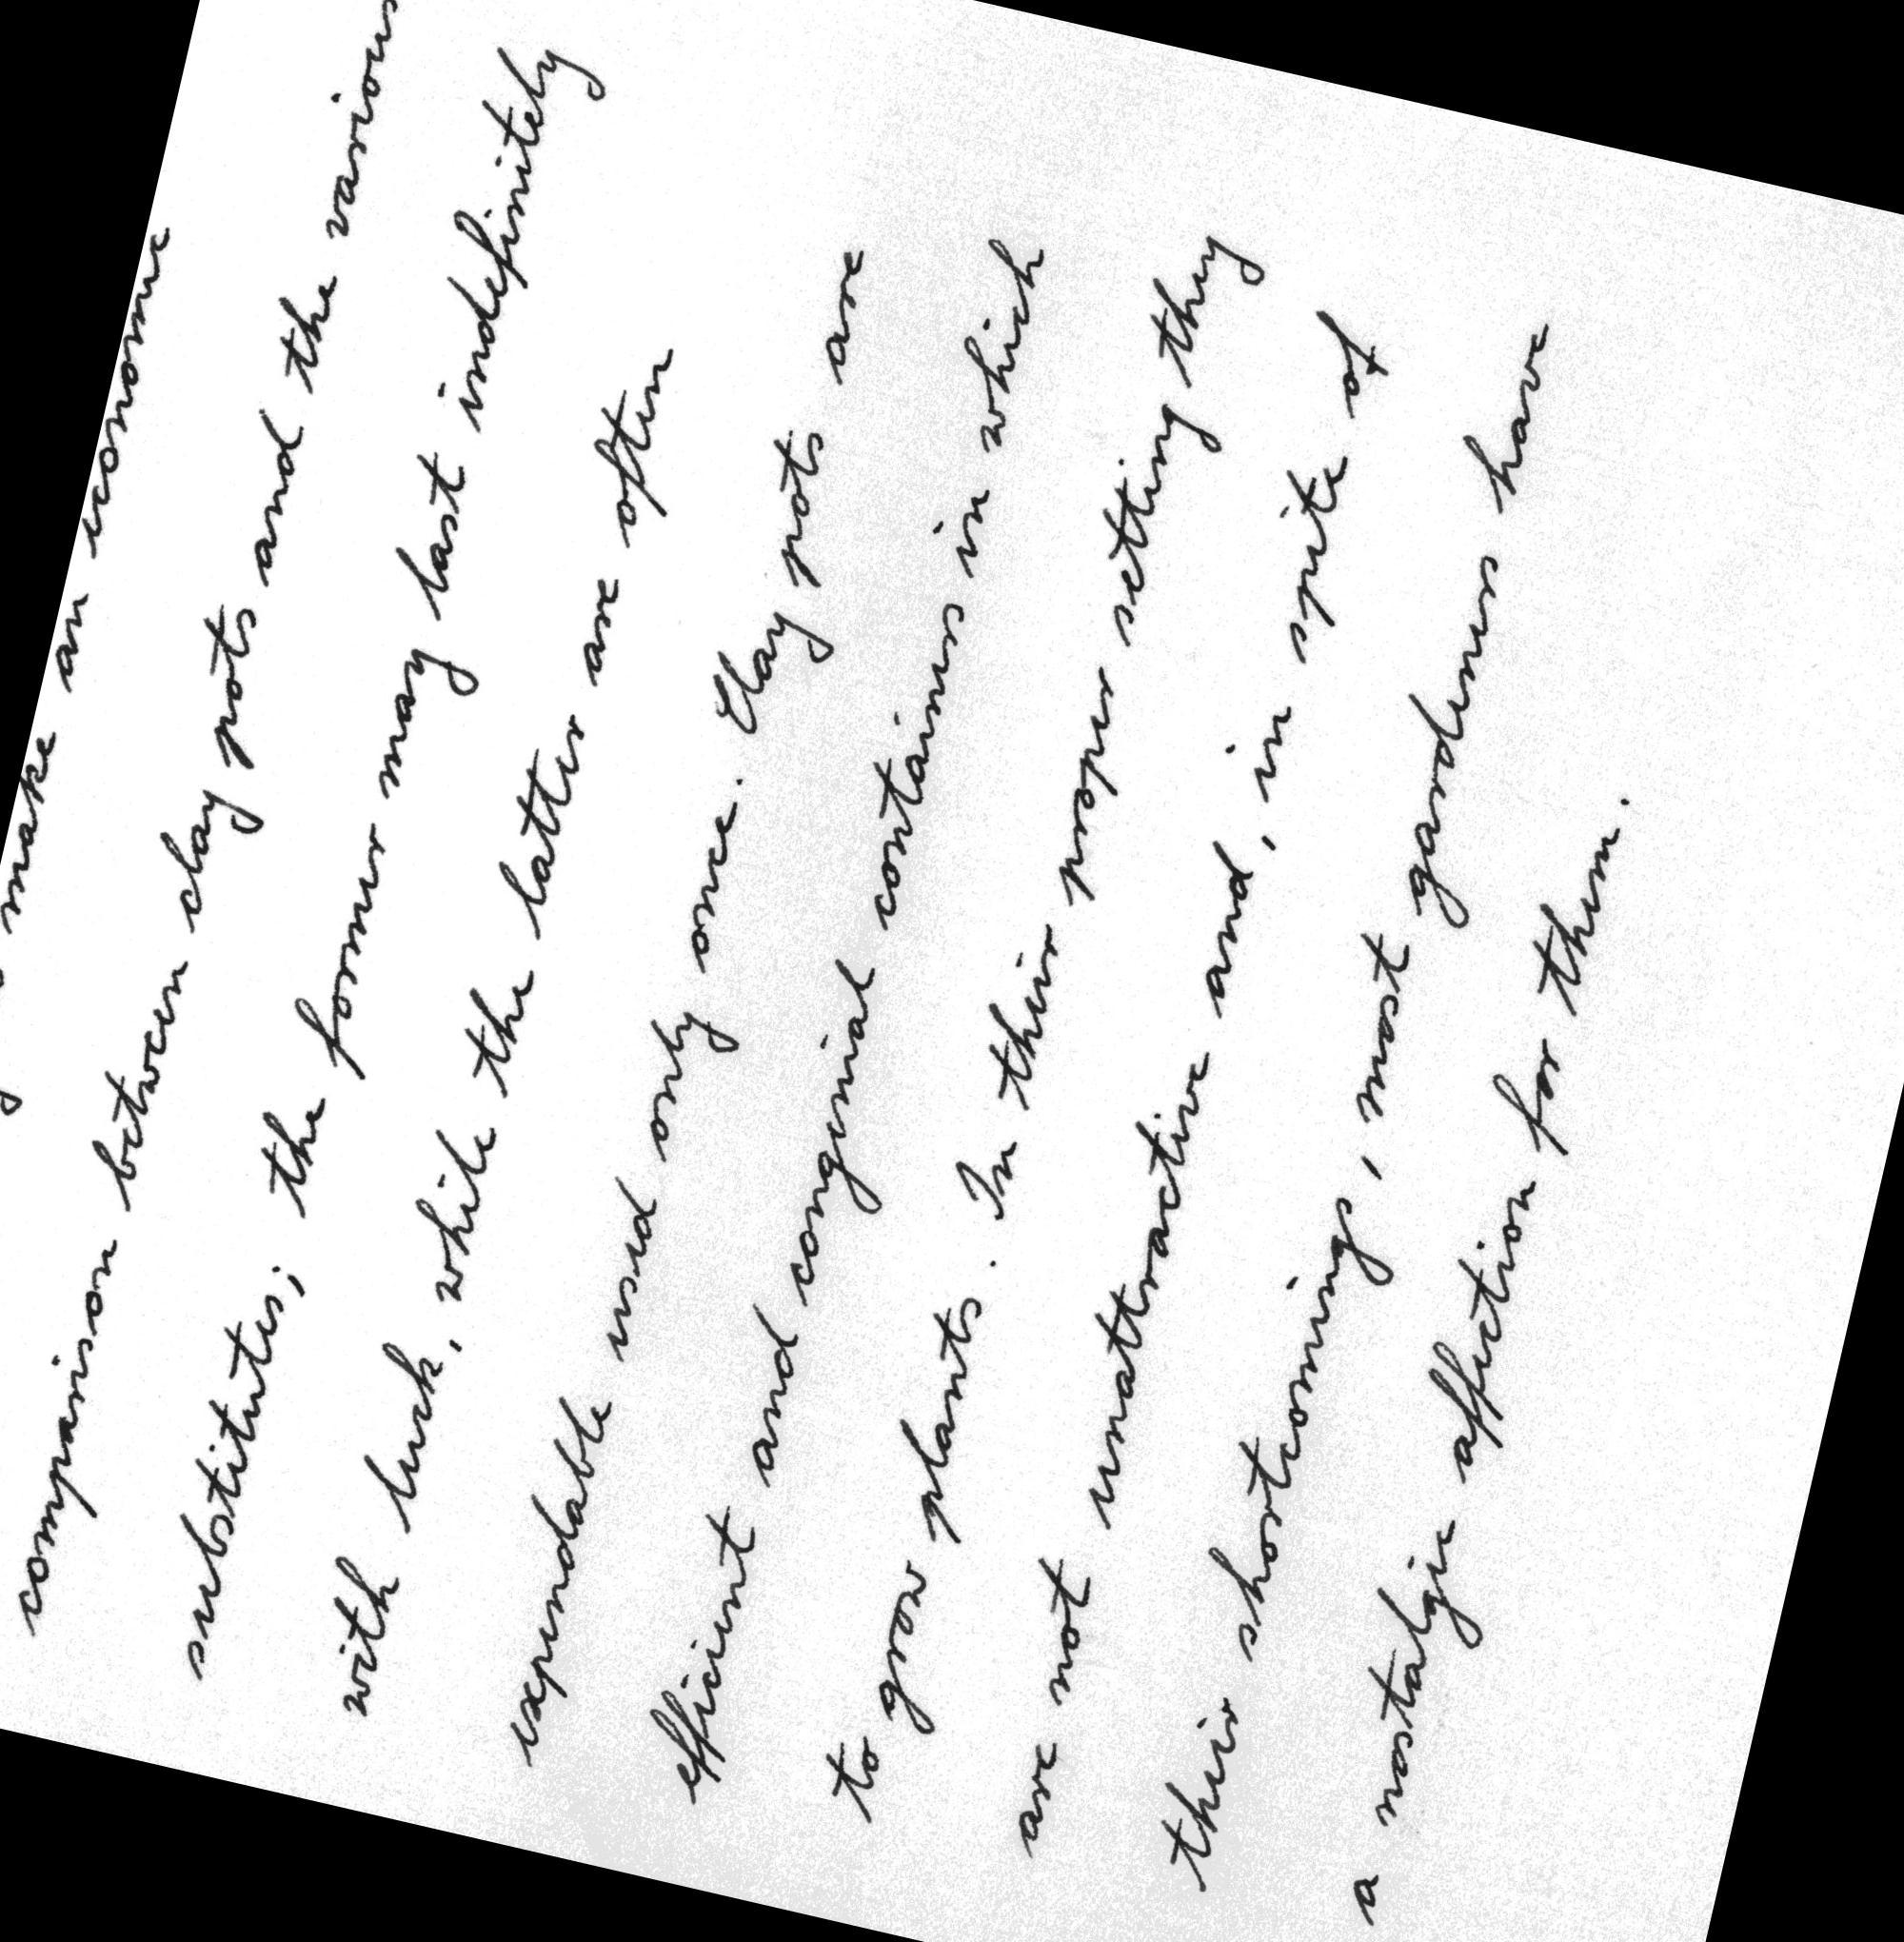 make an economic
comparison between clay pots and the various
substitutes; the former may last indefinitely
with luck, while the latter are often
expendable used only once. Clay pots are
efficient and congenial containers in which
to grow plants. In their proper setting they
are not unattractive and, in spite of
their shortcomings, most gardeners have
a nostalgic affection for them.